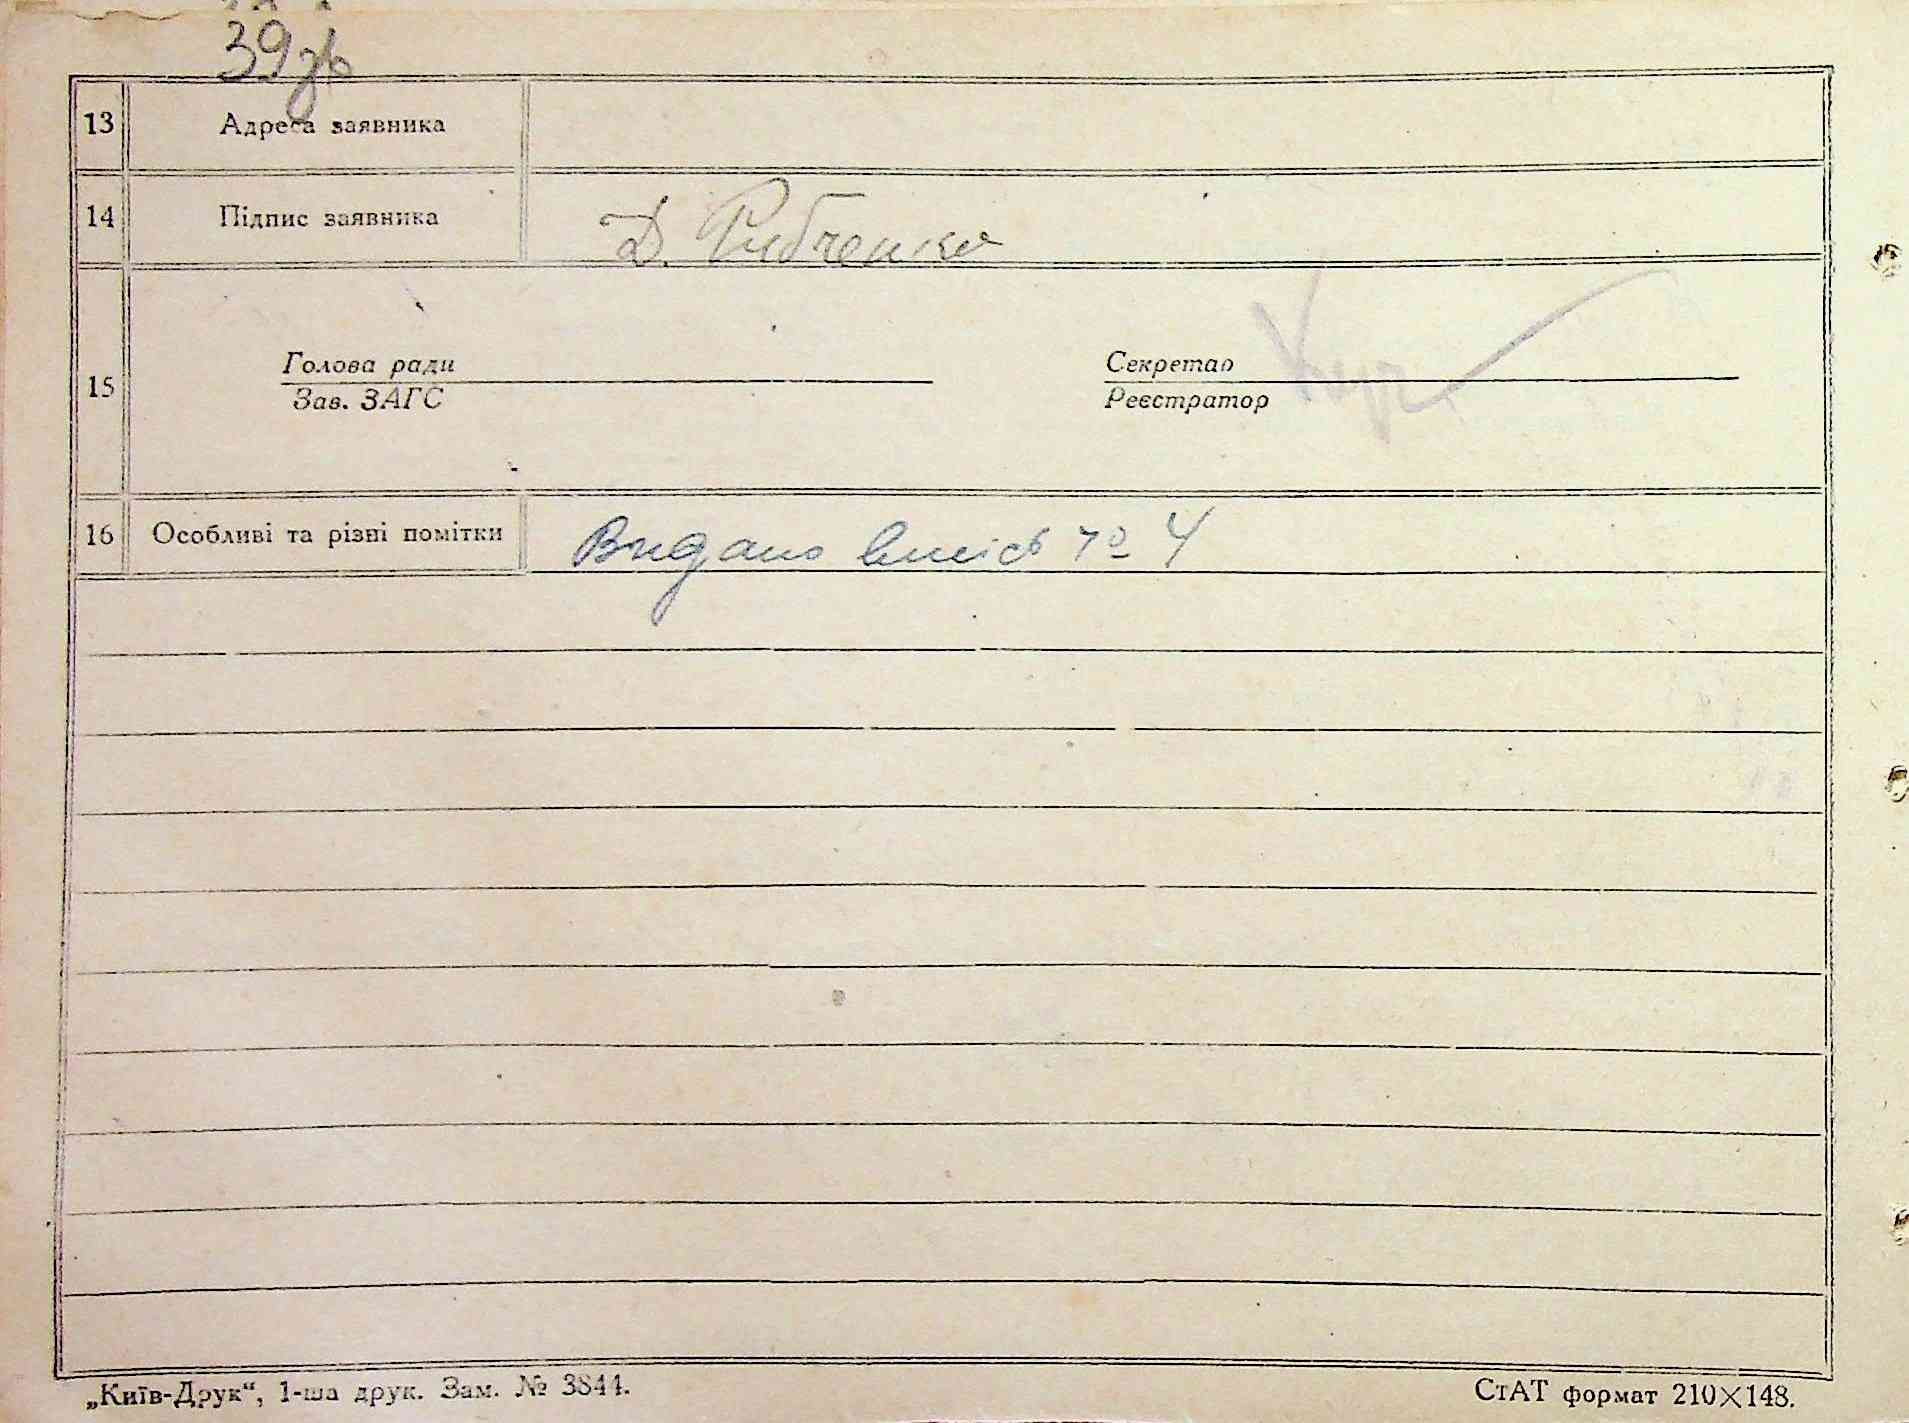 39 зв
13 Адреса заявника
14 Підпис заявника Д. Рибченко
Голова ради Секретар
15
Зав. ЗАГС Реєстратор
16 Особливі та різні помітки Видано випись № 4
„Київ-Друк“, 1-ша друк. Зам. № 3844.
СтАТ формат 210×148.